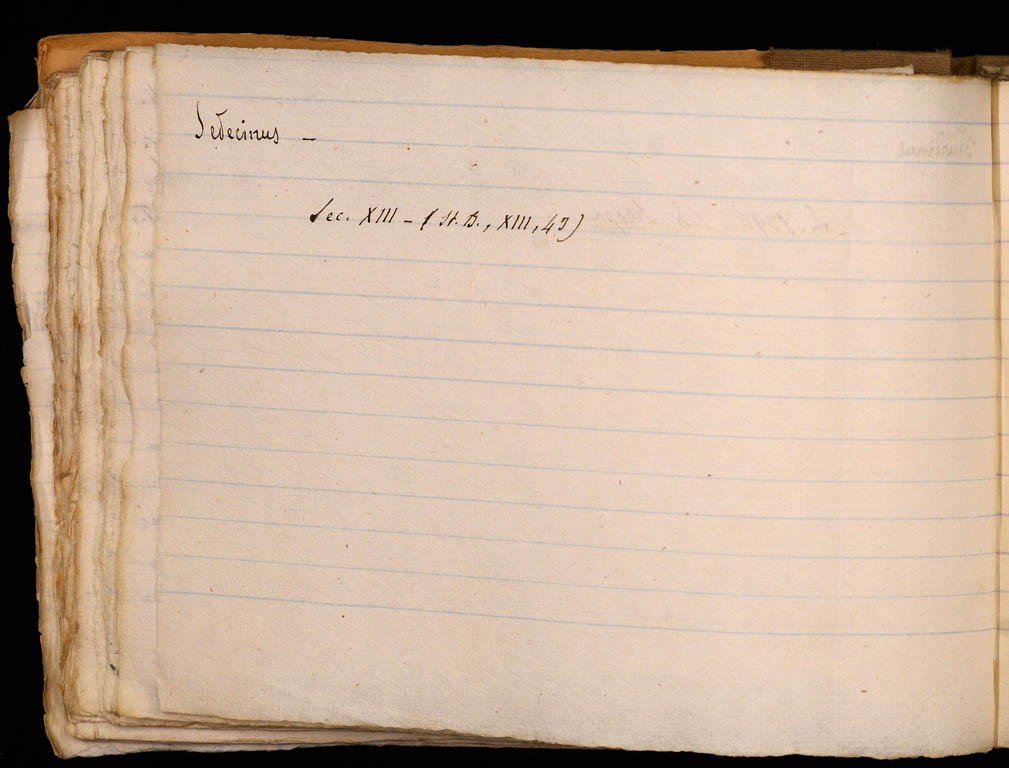 Sedecinus —
Sec. XIII — (St. B., XIII, 43)